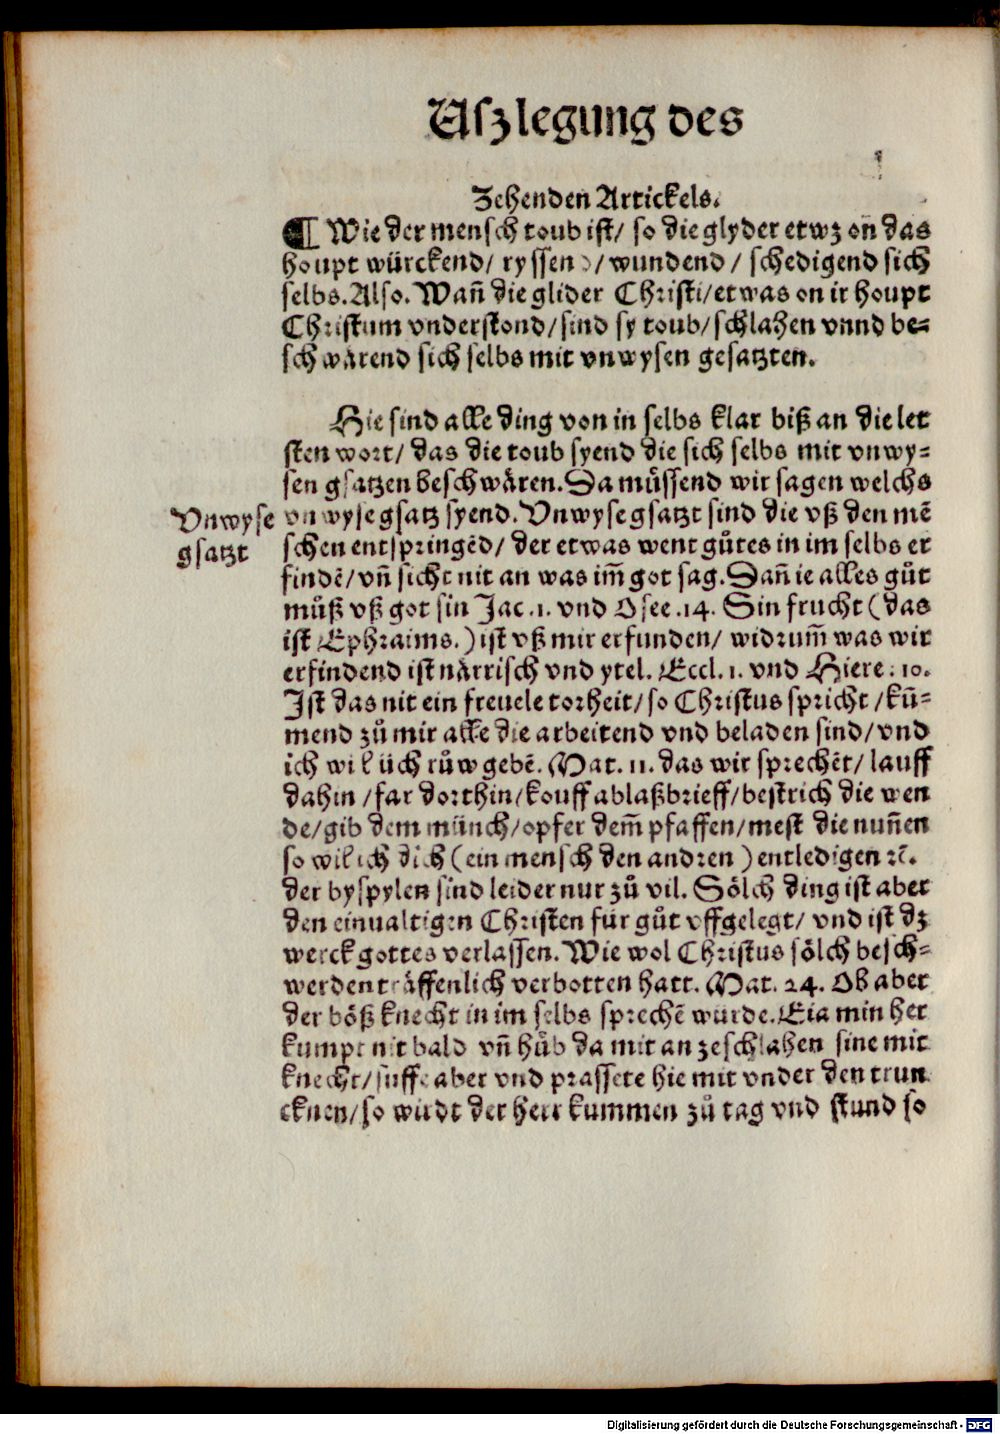 Uſzlegung des
Zehenden Artickels.
¶ Wie der menſch toub iſt/ ſo die glyder etwz on̄ das
houpt würckend/ ryſſend/ wundend/ ſchedigend ſich
ſelbs. Alſo. Wan̄ die glider Chriſti/ etwas on ir houpt
Chriſtum vnderſtond/ ſind ſy toub/ ſchlahen vnnd be⸗
ſchwärend ſich ſelbs mit vnwyſen geſatzten.
Hie ſind alle ding von in ſelbs klar biß an die let
ſten wort/ das die toub ſyend die ſich ſelbs mit vnwy⸗
ſen gſatzen beſchwären. Da müſſend wir ſagen welchs
Vnwyſe
gſatzt
vnwyſe gſatz ſyend. Vnwyſe gſatzt ſind die vß den mē
ſchen entſpringēd/ der etwas went gůtes in im ſelbs er
findē/ vn̄ ſicht nit an was im̄ got ſag. Dan̄ ie alles gůt
můß vß got ſin Jac. 1. vnd Oſee .14. Sin frucht (das
iſt Ephraims.) iſt vß mir erfunden/ widrum̄ was wir
erfindend iſt närriſch vnd ytel. Eccl. 1. vnd Hiere. 10.
Iſt das nit ein freuele torheit/ ſo Chriſtus ſpricht/ kū⸗
mend zů mir alle die arbeitend vnd beladen ſind/ vnd
ich wil üch růw gebē. Mat. 11. das wir ſprechēt/ lauff
dahin/ far dorthin/ kouff ablaßbrieff/ beſtrich die wen
de/ gib dem münch/ opfer dem̄ pfaffen/ meſt die nun̄en
ſo wil ich dich (ein menſch den andren) entledigen ꝛc̄.
der byſpylen ſind leider nur zů vil. Sölch ding iſt aber
den einualtigen Chriſten für gůt vffgelegt/ vnd iſt dz
werck gottes verlaſſen. Wie wol Chriſtus ſölch beſch⸗
werden träffenlich verbotten hatt. Mat. 24. Ob aber
der böß knecht in im ſelbs ſprechē wurde. Eia min her
kumpt nit bald vn̄ hůb da mit an zeſchlahen ſine mit
knecht/ ſuffe aber vnd praſſete hie mit vnder den trun
cknen/ ſo wirdt der herr kummen zů tag vnd ſtund ſo
Digitalisierung gefördert durch die Deutsche Forschungsgemeinschaft - DFG